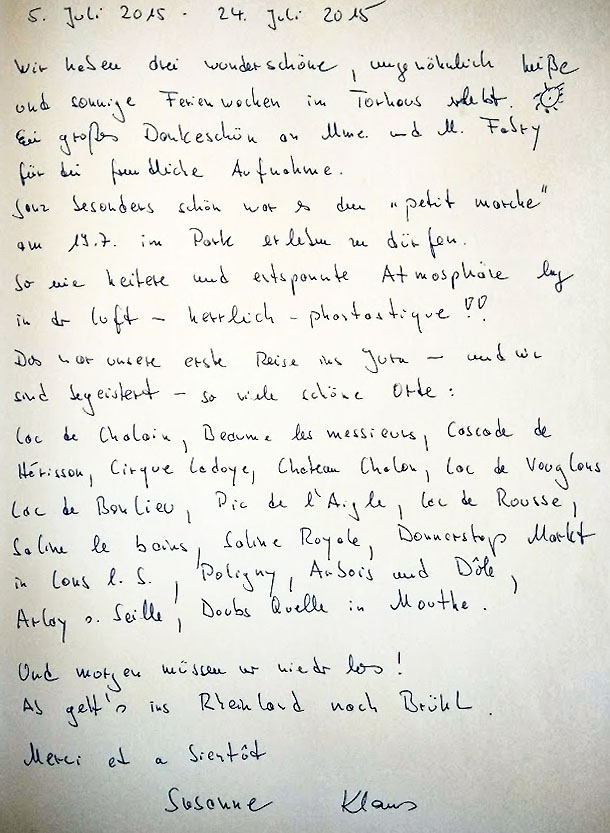 5. Juli 2015 - 24. Juli 2015
Wir haben drei wunderschöne, ungewöhnlich heiße
und sonnige Ferienwochen im Torhaus erlebt.
Ein großes Dankeschön an Mme. und M. Fabry
für die freundliche Aufnahme.
Ganz besonders schön war es den "petit marche"
am 19.7. im Park erleben zu dürfen.
So eine heitere und entspannte Atmosphäre lag
in der Luft - herrlich - phantastique !!
Das war unsere erste Reise ins Jura - und wir
sind begeistert - so viele schöne Orte:
Lac de Chalain, Beaume les messieurs, Cascade de
Hérisson, Cirque Ladoye, Chateau Chalon, Lac de Vouglans
Lac de Bonlieu, Pic de l'Aigle, Lac de Rousse,
Saline le bains, Saline Royale, Donnerstag Markt
in Lons l. S., Poligny, Arbois und Dôle,
Arlay s. Seille, Doubs Quelle in Mouthe.
Und morgen müssen wir wieder los!
Ab geht's ins Rheinland nach Brühl.
Merci et a bientôt
Susanne Klaus